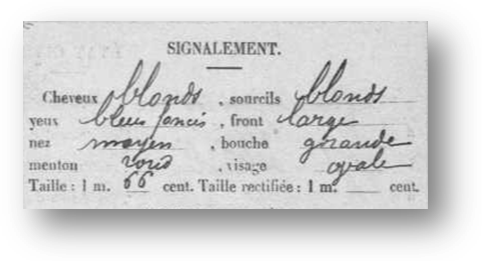 SIGNALEMENT.
Cheveux blonds , sourcils blonds
yeux bleus foncés , front large
nez moyen , bouche grande
menton rond , visage ovale
Taille : 1 m. 66 cent. Taille rectifiée : 1 m. cent.